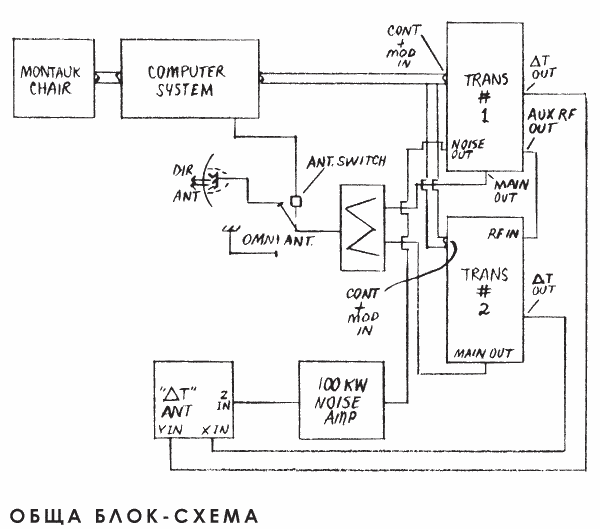 MONTAUK
CHAIR
COMPUTER
SYSTEM
CONT
+
MOD
IN
TRANS
#
1
ΔT
OUT
AUX RF
OUT
NOISE
OUT
MAIN
OUT
DIR
ANT
ANT. SWITCH
OMNI ANT.
RF IN
TRANS
#
2
ΔT
OUT
CONT
+
MOD
IN
MAIN OUT
"ΔT"
ANT
Z
IN
Y IN X IN
100 KW
NOISE
AMP
ОБЩА БЛОК-СХЕМА